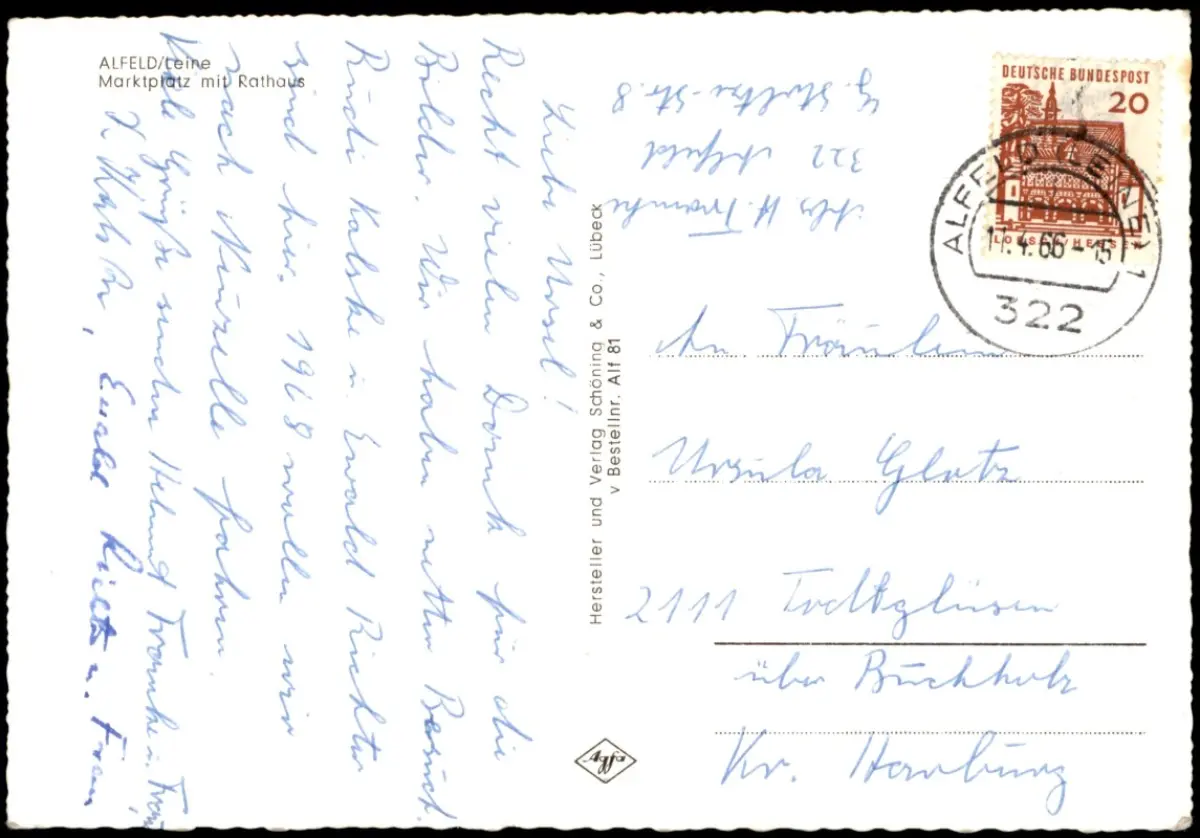 ALFELD/Leine
Marktplatz mit Rathaus
Liebe Ursel!
Recht vielen Dank für die
Bilder. Wir haben netten Besuch.
Rudi Kalske u. Ewald Richter
sind hier. 1968 wollen wir
nach Neuzelle fahren.
Viele Grüße senden Helmut Franke u. Frau
Ewald Richter u. Frau
Hersteller und Verlag Schöning & Co., Lübeck
v Bestellnr. Alf 81
Agfa
Abs. H. Franke
322 Alfeld
G. Stoltze-Str. 8
DEUTSCHE BUNDESPOST
20
LORSCH/HESSEN
ALFELD (LEINE) 1
11.4.66-15
322
An Fräulein
Ursula Glatz
2111 Todtglüsen
über Buchholz
Kr. Harburg